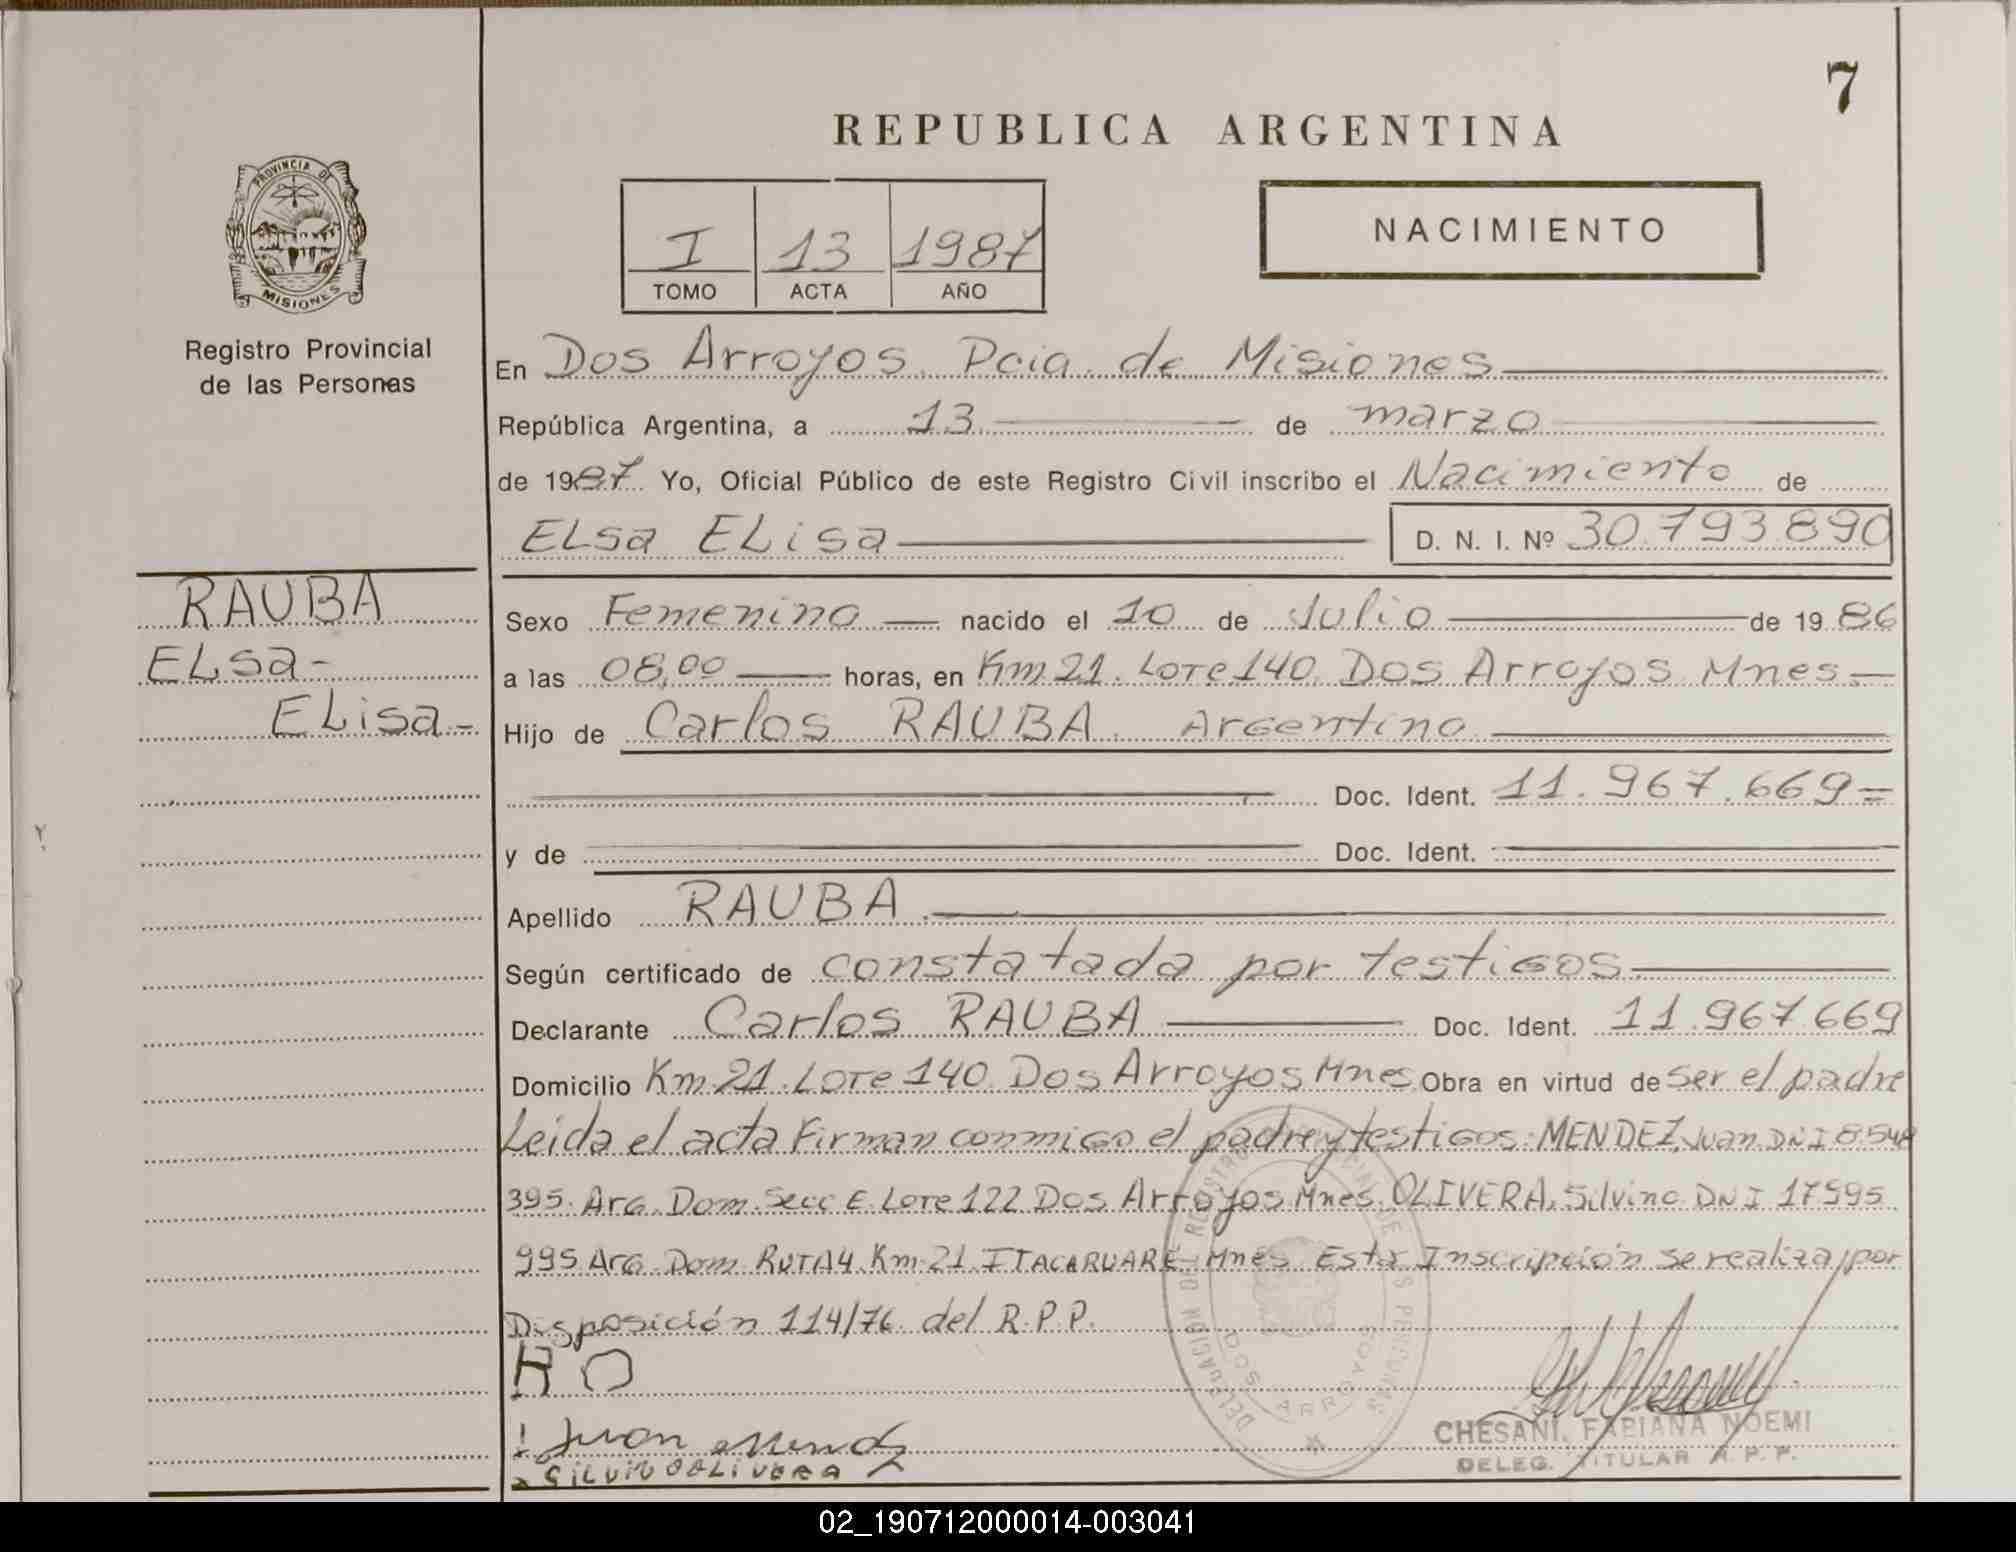 7
REPUBLICA ARGENTINA
PROVINCIA DE
MISIONES
I 13 1987
TOMO ACTA AÑO
NACIMIENTO
Registro Provincial
de las Personas
En Dos Arroyos Pcia de Misiones
República Argentina, a 13 de marzo
de 1987 Yo, Oficial Público de este Registro Civil inscribo el Nacimiento de
ELsa ELisa D. N. I. Nº 30.793.890
RAUBA
ELsa-
ELisa-
Sexo Femenino nacido el 10 de Julio de 1986
a las 08,00 horas, en Km 21. Lote 140. Dos Arroyos Mnes.
Hijo de Carlos RAUBA. Argentino
Doc. Ident. 11.967.669=
y de Doc. Ident.
Apellido RAUBA.
Según certificado de constatada por testigos
Declarante Carlos RAUBA Doc. Ident. 11.967.669
Domicilio Km.21.Lote 140. Dos Arroyos Mnes Obra en virtud de ser el padre
Leida el acta Firman conmigo el padre y testigos: MENDEZ, Juan. DNI 8.548
395. Arg. Dom. Secc E. Lote 122 Dos Arroyos Mnes. OLIVERA, Silvino DNI 17595
995 Arg. Dom. RUTA 4. Km-21 ITACARUARE Mnes Esta Inscripción se realiza por
Disposición 114/76. del R.P.P.
Juan Mendz
SILVINO OLIVERA
DELEGACION DEL REGISTRO PROVINCIAL DE LAS PERSONAS
DOS ARROYOS
CHESANI, FABIANA NOEMI
DELEG. TITULAR R. P. P.
02_190712000014-003041